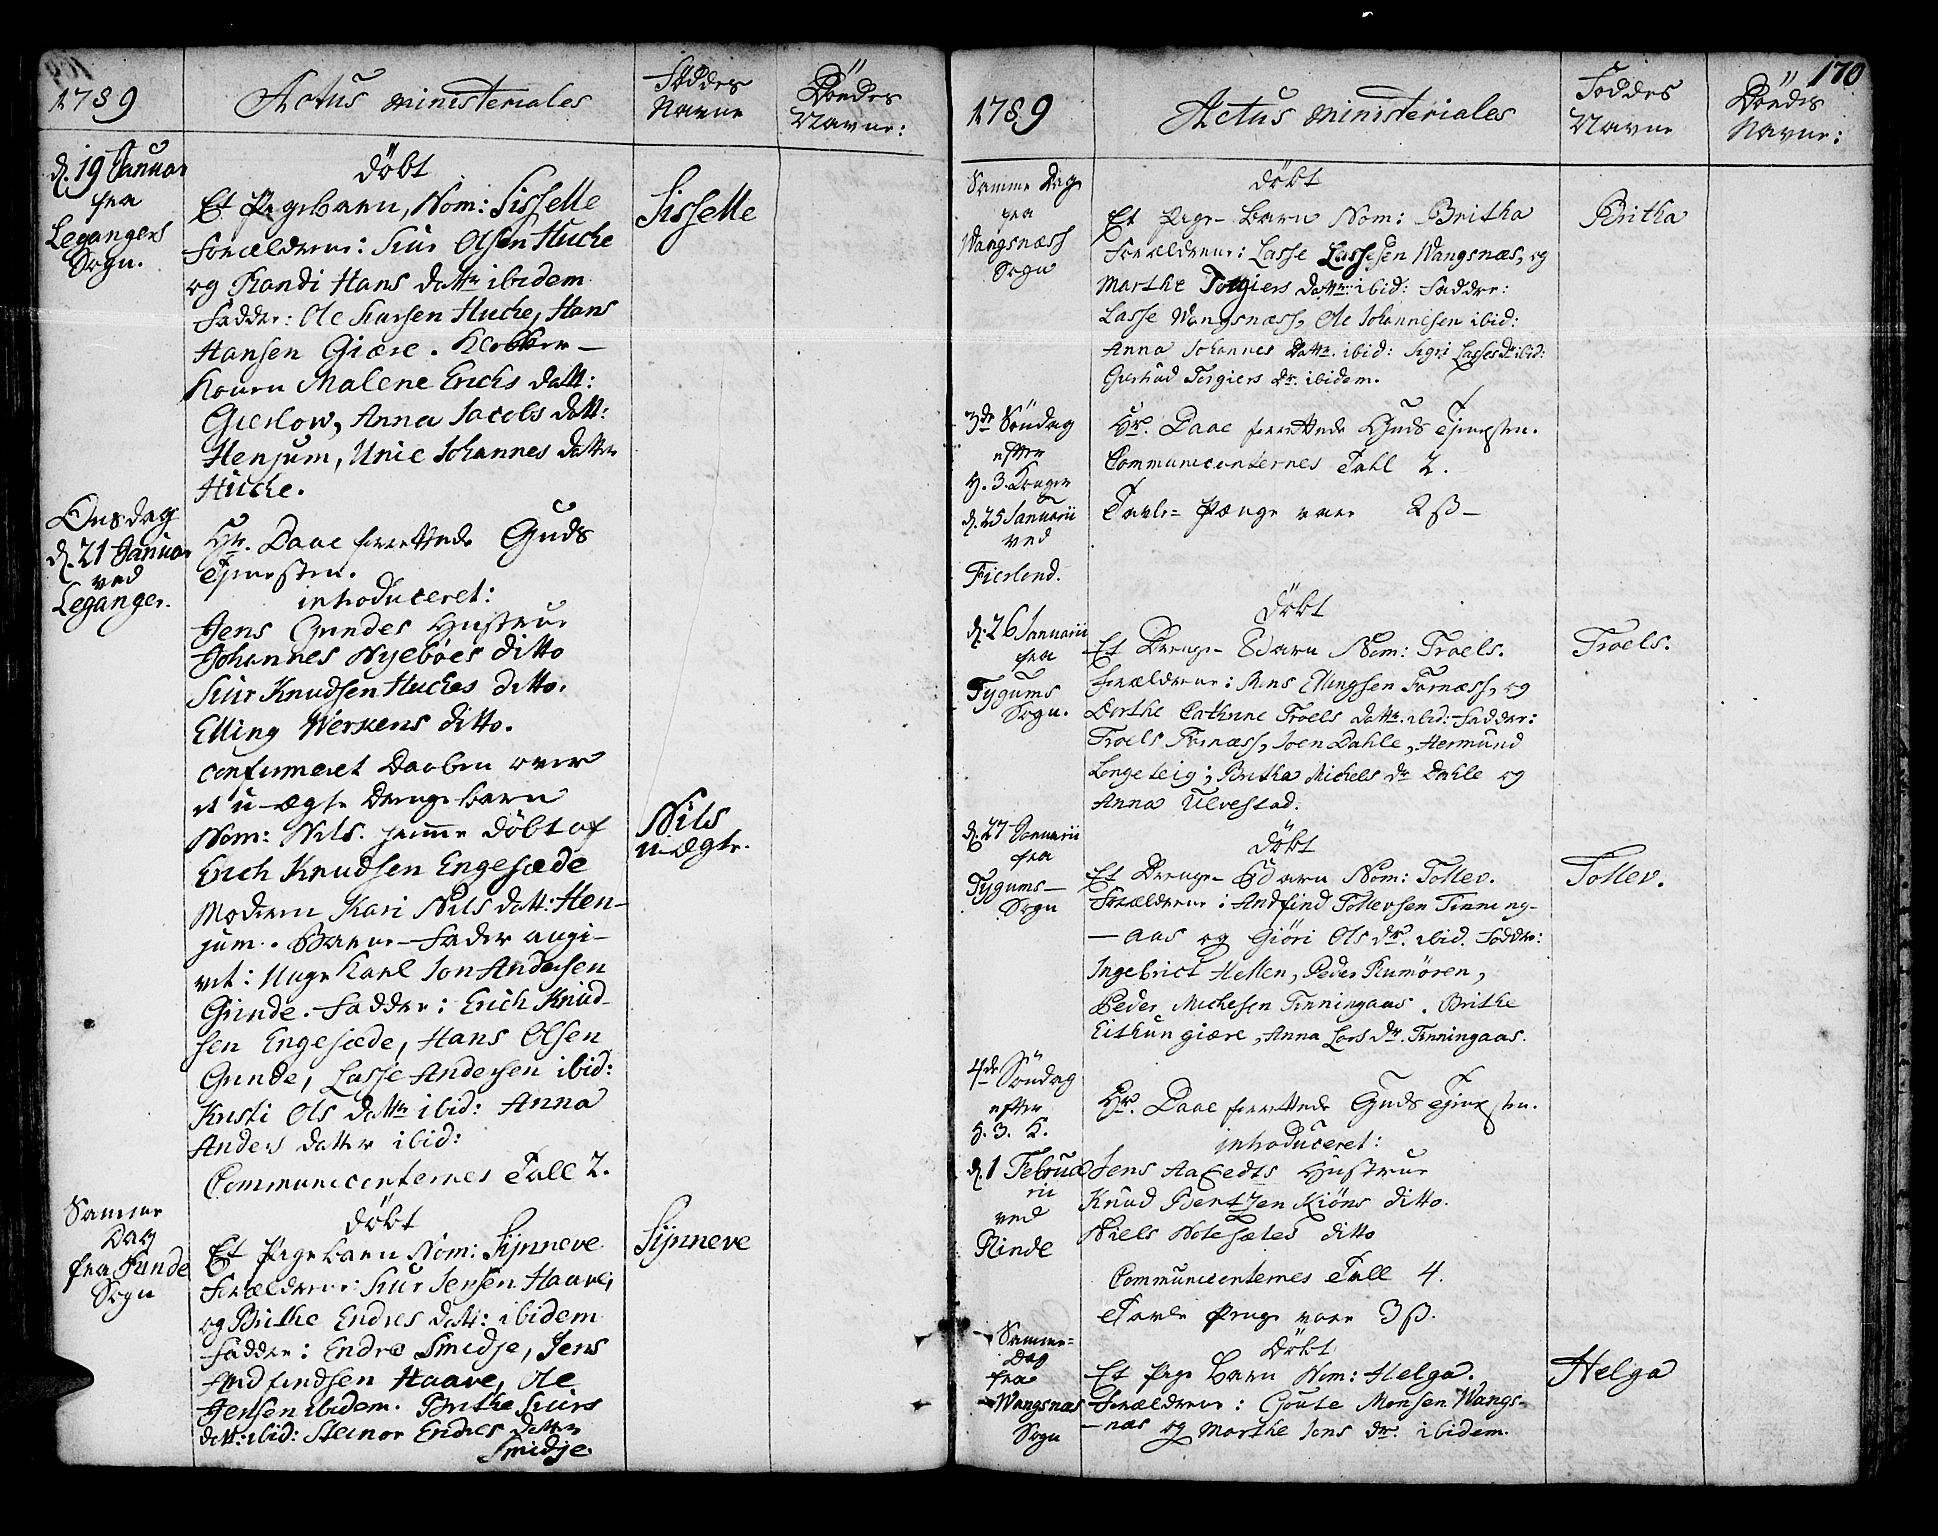 1789
Actus ministeriales
Föddes
Navne
Döedes
Navne:
d. 19 Januar
fra
Legangers
Sogn.
döbt
Et Pigebarn, Nom: Sisselle
Sisselle
Forældrene: Siur Olsen Huche
og Randi Hans datter ibidem
Fadder: Ole Siursen Huche, Hans
Hansen Giære. Klokker-
konen Malene Erichs datt:
Gierlow, Anna Jacobs datt:
Henjum, Unie Johannes datter
Huche.
Onsdag
d. 21 Januar
ved
Leganger.
Hr. Daae forrettede Guds
Tjenesten.
introduceret:
Jens Gundes Hustrue
Johannes Nyebøes ditto
Siur Knudsen Huches ditto.
Elling Werkens ditto.
confirmeret Daaben over
et u-ægte Drenge barn
Nom: Nils. hjemme döbt af
Nils
u-ægte.
Erich Knudsen Engesæde
Moderen Kari Nils datt: Hen-
jum. Barne-Fader angi-
vet: Unge Karl Jon Andersen
Gunde. Fadder: Erich Knud-
sen Engesæde, Hans Olsen
Gunde, Lasse Andersen ibid:
Kristi Ols datter ibid: Anna
Anders datter ibid:
Communicanternes Tall 2.
Samme
Dag
fra
Sogn
döbt
Et Pige barn Nom: Sijnneve
Sijnneve
Forældrene: Siur Jensen Haave,
og Brithe Endres datt: ibidem
Fadder: Endre Smidje, Jens
Andfindsen Haave, Ole
Jensen ibidem. Brithe Siurs
datt: ibid: Steinor Endres datter
Smidje.
170
1789
Actus ministeriales
Föddes
Navne
Döedes
Navne:
Samme Dag
fra
Wangsnæss
Sogn
döbt
Et Pige-barn Nom: Britha
Britha
Forældrene: Lasse Lassesen Wangsnæs, og
Marthe Torgiers datter ibid: Fadder:
Lasse Wangsnæss, Ole Johannesen ibid:
Anna Johannes datter. ibid: Sigri Lasses dr ibid:
Giertrud Torgiers dr. ibidem.
3de Söndag
efter
H. 3. Konger
d. 25 Januarii
ved
Fierland.
Hr. Daae forrettede Guds Tjenesten.
Communicanternes Tall 2.
Tavle-Penge vare 2 ß-
d. 26 Januarii
fra
Tygums
Sogn.
döbt
Et Drenge-Barn Nom: Troels.
Troels.
Forældrene: Jens Ellingsen Farnæss, og
Dorthe Cathrine Troels datter. ibid: Fadder:
Troels Farnæss, Joen Dahle, Hermund
Longeteig, Britha Michels dr Dahle og
Anna Ulvestad.
d. 27 Januarii
fra
Tygums-
Sogn
döbt
Et Drenge-Barn Nom: Tollev.
Tollev.
Forældrene: Andfind Tollevsen Tinning-
-aas og Giöri Ols dr. ibid. Fadder:
Ingebrict Hellen, Peder Rumören,
Peder Michelsen Tinningaas. Brithe
Eithungiære, Anna Lars dr. Tinningaas.
4de Söndag
efter
H. 3. K.
d. 1 Februa
rii
ved
Rinde
Hr. Daae forrettede Guds Tjenesten.
introduceret:
Jens Hustrue
Knud Bentzen Kiöns ditto.
Niels Notesætes ditto
Communicanternes Tall 4.
Tavle Penge vare 3 ß.
Samme-
Dag
fra
Wangsnæs
Sogn
Döbt
Et Pige barn Nom: Helga.
Helga
Forældrene: Goute Monsen Wangs-
-næs og Marthe Jens dr. ibidem.